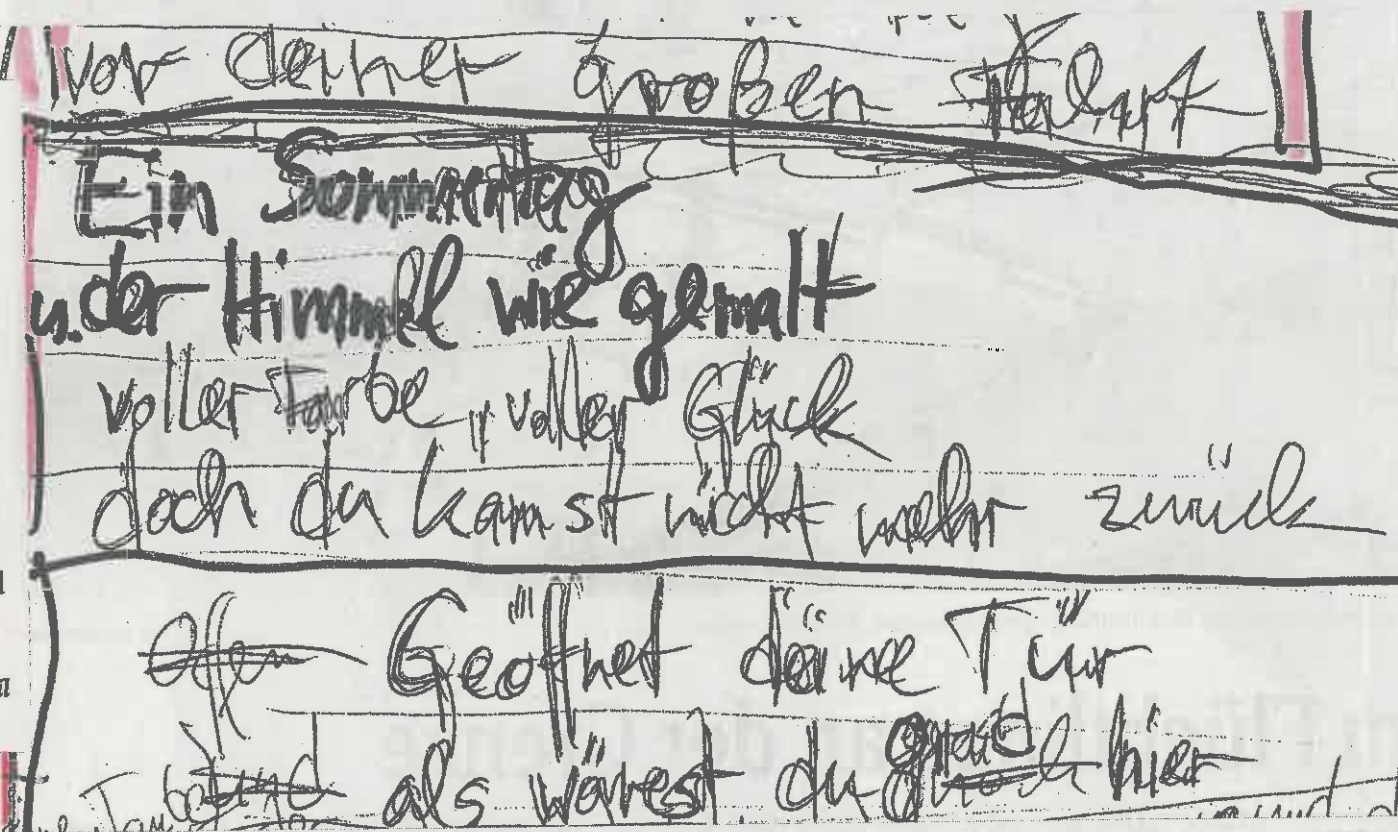 vor deiner großen Fahrt
Ein Sommertag
u. der Himmel wie gemalt
voller Farbe, voller Glück
doch du kamst nicht mehr zurück
Offen Geöffnet deine Tür
grad
als wärest du noch hier